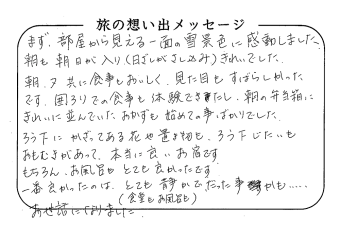 旅の想い出メッセージ
まず、部屋から見える一面の雪景色に感動しました。
朝も朝日が入り(日ざしがさし込み)きれいでした。
朝、夕共に食事もおいしく、見た目もすばらしかった
です。囲ろりでの食事も体験できたし、朝の弁当箱に
きれいに並んでいたおかずも始めての事ばかりでした。
ろう下にかざってある花や置き物も、ろう下じたいも
おもむきがあって、本当に良いお宿です
もちろん、お風呂もとても良かったです
一番良かったのは、とても静かでだった事かも……
(食堂もお風呂も)
お世話になりました。